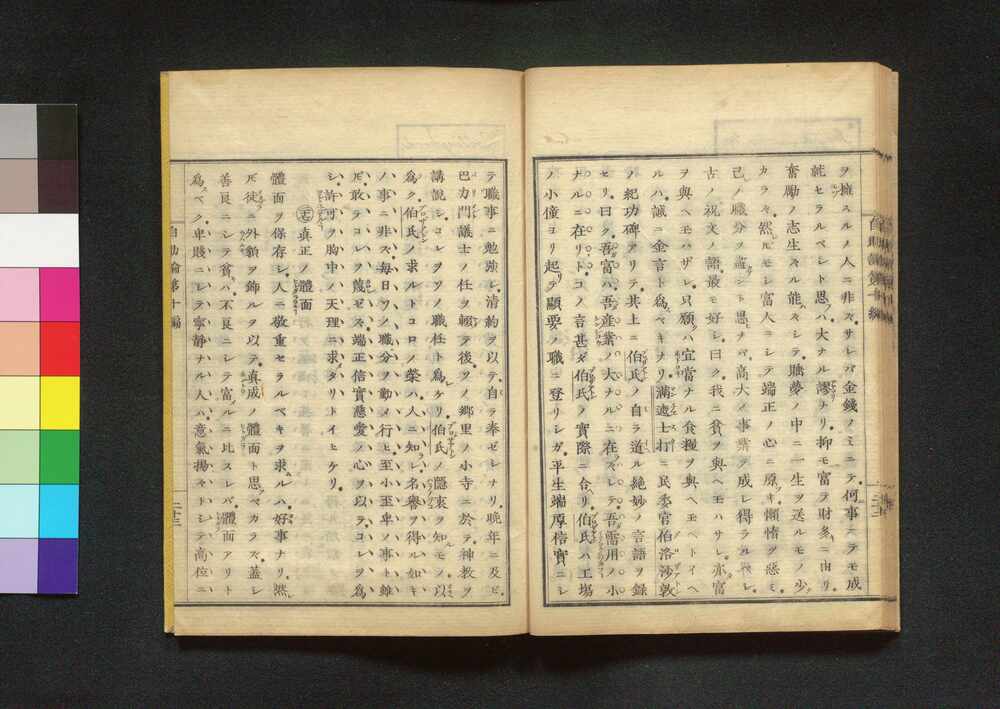 ヲ擁スルノ人ニ非ズ。サレバ金錢ノミニテ何事ニテモ成
就セラルベシト思ハ大ナル謬ナリ。抑モ富テ財多ニ由リ。
奮勵ノ志生ズル能ズシテ。睡夢ノ中ニ一生ヲ送ルモノ少
カラズ。然レドモシ富人ニシテ端正ノ心ニ原ヅキ。懶惰ヲ惡ミ。
己ノ職分ヲ盡ント思ナバ。高大ノ事業ヲ成シ得ラルベシ。
古ノ祝文ノ語最モ好シ。曰ク。我ニ貧ヲ與ヘモハザレ。亦富
ヲ與ヘモハザレ。只願ハ宜當ナル食糧ヲ與ヘモヘトイヘ
ルハ。誠ニ金言ト爲ベキナリ。滿遮士打ニ民委官伯洛沙敦
ノ紀功碑アリ。其上ニ伯氏ノ自ラ道ル絶妙ノ言語ヲ録
セリ。曰ク。吾富ハ。吾産業ノ大ナルニ在ズシテ。吾需用ノ小
ナルニ在リト。コノ言甚ダ伯氏ノ實際ニ合リ。伯氏ハ工塲
ノ小僮ヨリ起リテ顯要ノ職ニ登リシガ。平生端厚信實ニシ
テ職事ニ勉強シ。清約ヲ以テ自ラ奉ゼシナリ。晩年ニ及ビ。
巴力門議士ノ任ヲ輟テ後。ソノ郷里ノ小寺ニ於テ。神教ヲ
講説シ。コレヲソノ職任ト爲ケリ。伯氏ノ隱衷ヲ知モノ。以
爲ク伯氏ノ求ルトコロノ榮ハ。人ニ知レ名譽ヲ得ル如キ
ノ事ニ非ズ。毎日ソノ職分ヲ勤メ行ヒ。至小至卑ノ事ト雖
ドモ。敢テコレヲ蔑ゼズ。端正信實慈愛ノ心ヲ以テコレヲ爲
シ。許可ヲ胸中ノ天理ニ求タリトイヒケリ。
真正ノ體面
體面ヲ保存シ。人ニ敬重セラルベキヲ求ルハ。好事ナリ。然
ドモ徒ニ外貌ヲ飾ルヲ以テ。真成ノ體面ト思ベカラズ。蓋シ
善良ニシテ貧ハ。不良ニシテ富ルニ比スレバ。體面アリト
爲ベク。卑賤ニシテ寧靜ナル人ハ。意氣揚々トシテ高位ニ
自助論第十編